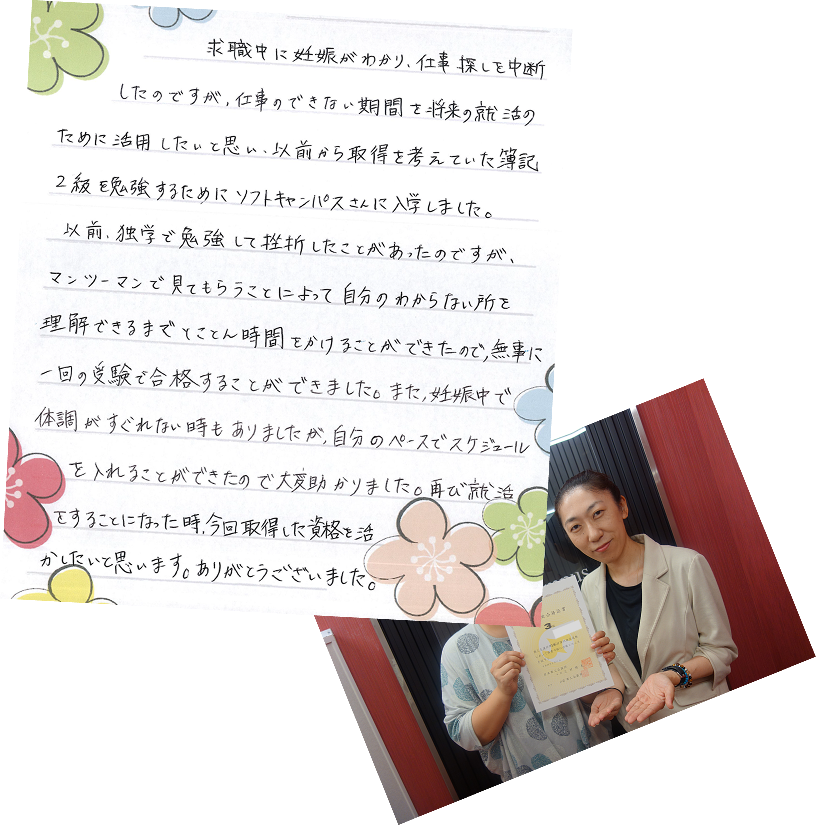 求職中に妊娠がわかり、仕事探しを中断
したのですが、仕事のできない期間を将来の就活の
ために活用したいと思い、以前から取得を考えていた簿記
2級を勉強するためにソフトキャンパスさんに入学しました。
以前、独学で勉強して挫折したことがあったのですが、
マンツーマンで見てもらうことによって自分のわからない所を
理解できるまでとことん時間をかけることができたので、無事に
一回の受験で合格することができました。また、妊娠中で
体調がすぐれない時もありましたが、自分のペースでスケジュール
を入れることができたので大変助かりました。再び就活
をすることになった時、今回取得した資格を活
かしたいと思います。ありがとうございました。
3